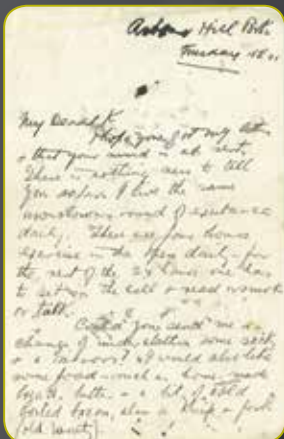 Arbour Hill Bks.
Tuesday
My Dear K,
I hope you got my letter
& that your mind is at rest.
There is nothing new to tell
you so far I live the same
monotonous round of existence
daily. There are four hours
exercise in the open daily – for
the rest of the 24 hours one has
to sit in the cell & read or smoke
or talk.
Could you send me a
change of underclothes some socks
& a razor? I would also like
some food – such as home-made
bread, butter & a bit of cold
boiled bacon, also a knife & fork
(old variety)